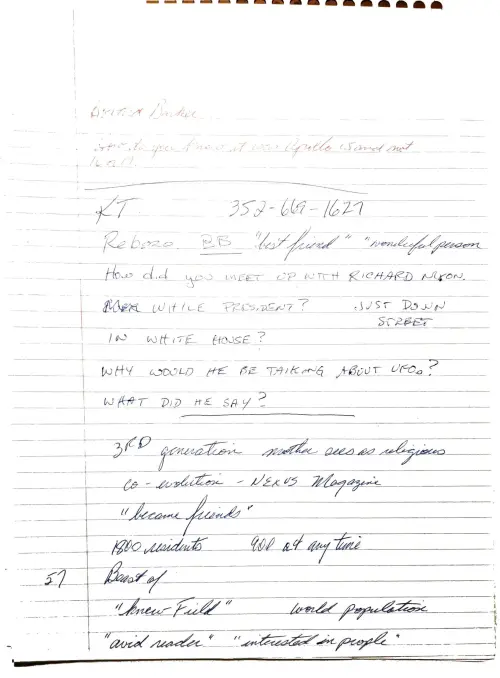 How do you know it was Apollo 15 and not
KT 352-669-1627
Rebozo BB "best friend" "wonderful person
How did you MEET UP WITH RICHARD NIXON.
WHILE PRESIDENT? JUST DOWN
STREET
IN WHITE HOUSE?
WHY WOULD HE BE TALKING ABOUT UFOs?
WHAT DID HE SAY?
3RD generation mother sees as religious
co-evolution - NEXUS Magazine
"became friends"
1800 residents 900 at any time
57 Beast of
"knew Field" world population
"avid reader" "interested in people"